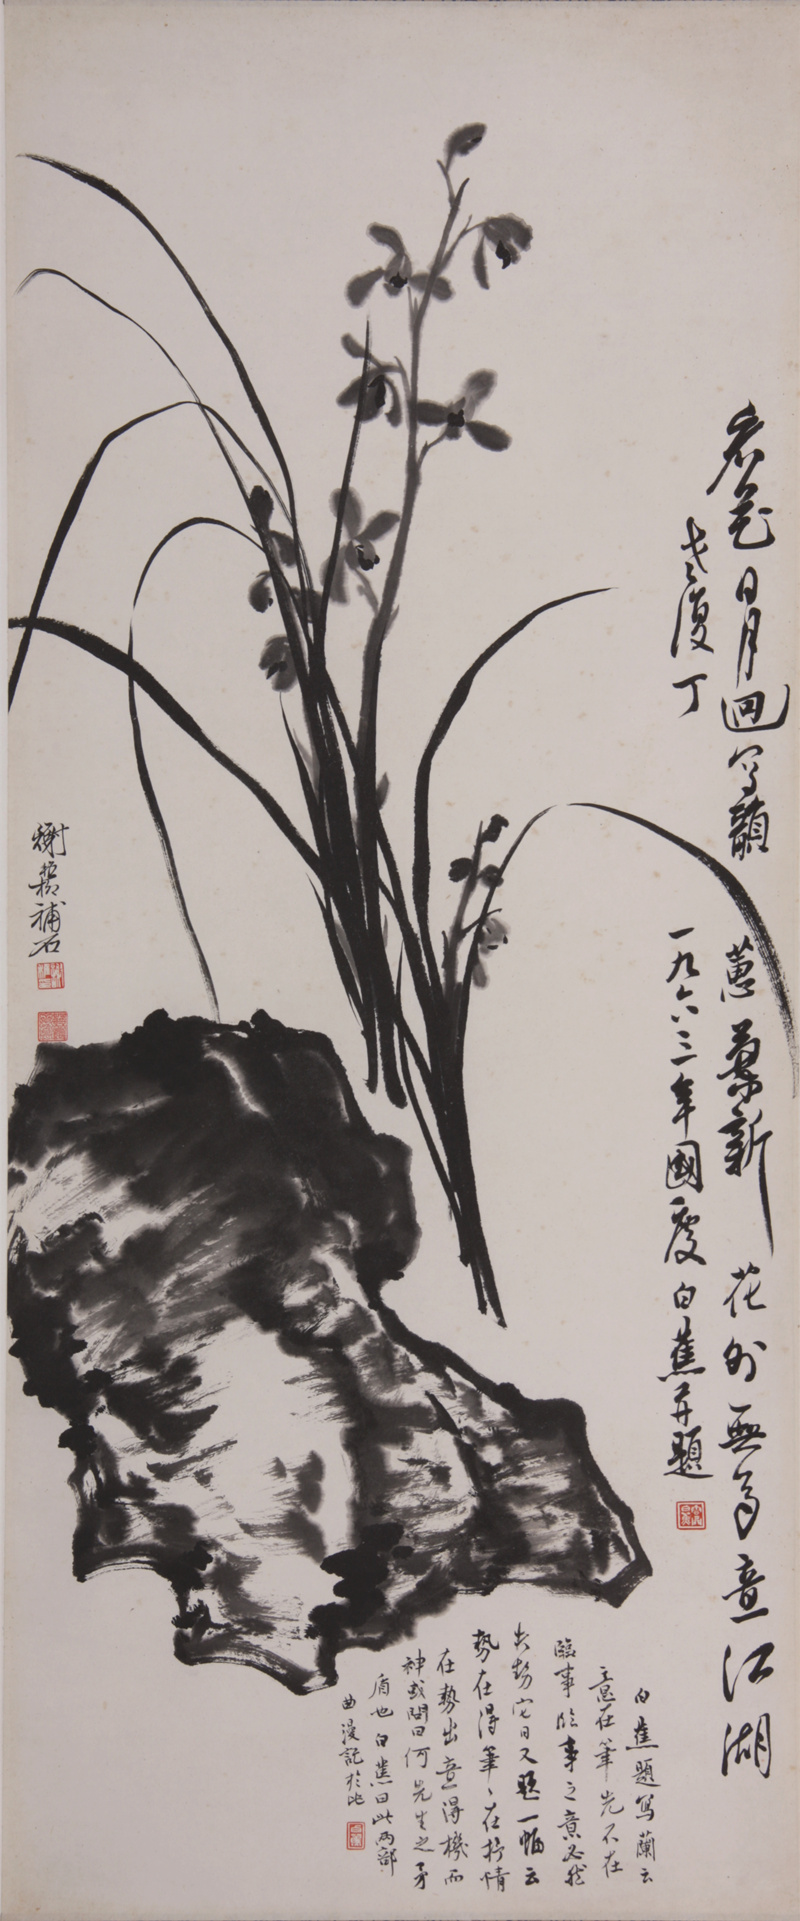 看花日月迴写韻蕙葉新花外無多意江湖
老復丁
一九六三年國慶白蕉并題
謝稺補石
白蕉題寫蘭云
意在筆先不在
臨事臨事之意必然
失勢它日又題一幅云
勢在得筆、在抒情
在勢出意得機而
神或問曰何先生之矛
盾也白蕉曰此兩部
曲漫記於此